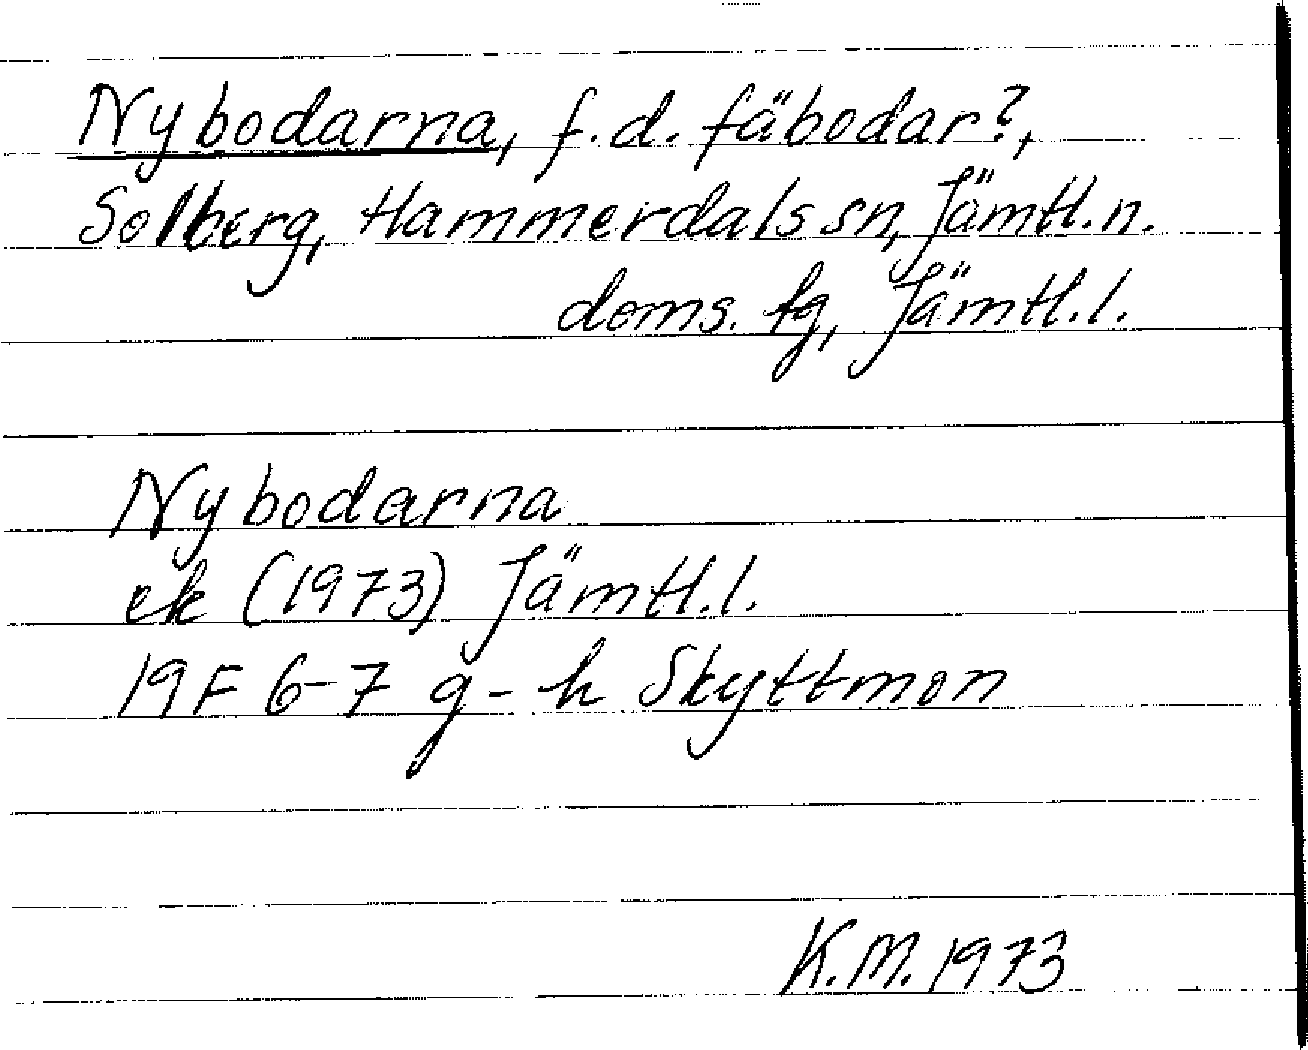 Nybodarna, f.d. fäbodar?,
Solberg, Hammerdals sn, Jämtl.n.
doms. tg, Jämtl.l.
Nybodarna
ek (1973) Jämtl.l.
19F 6-7 g-h Skyttmon
K.M. 1973